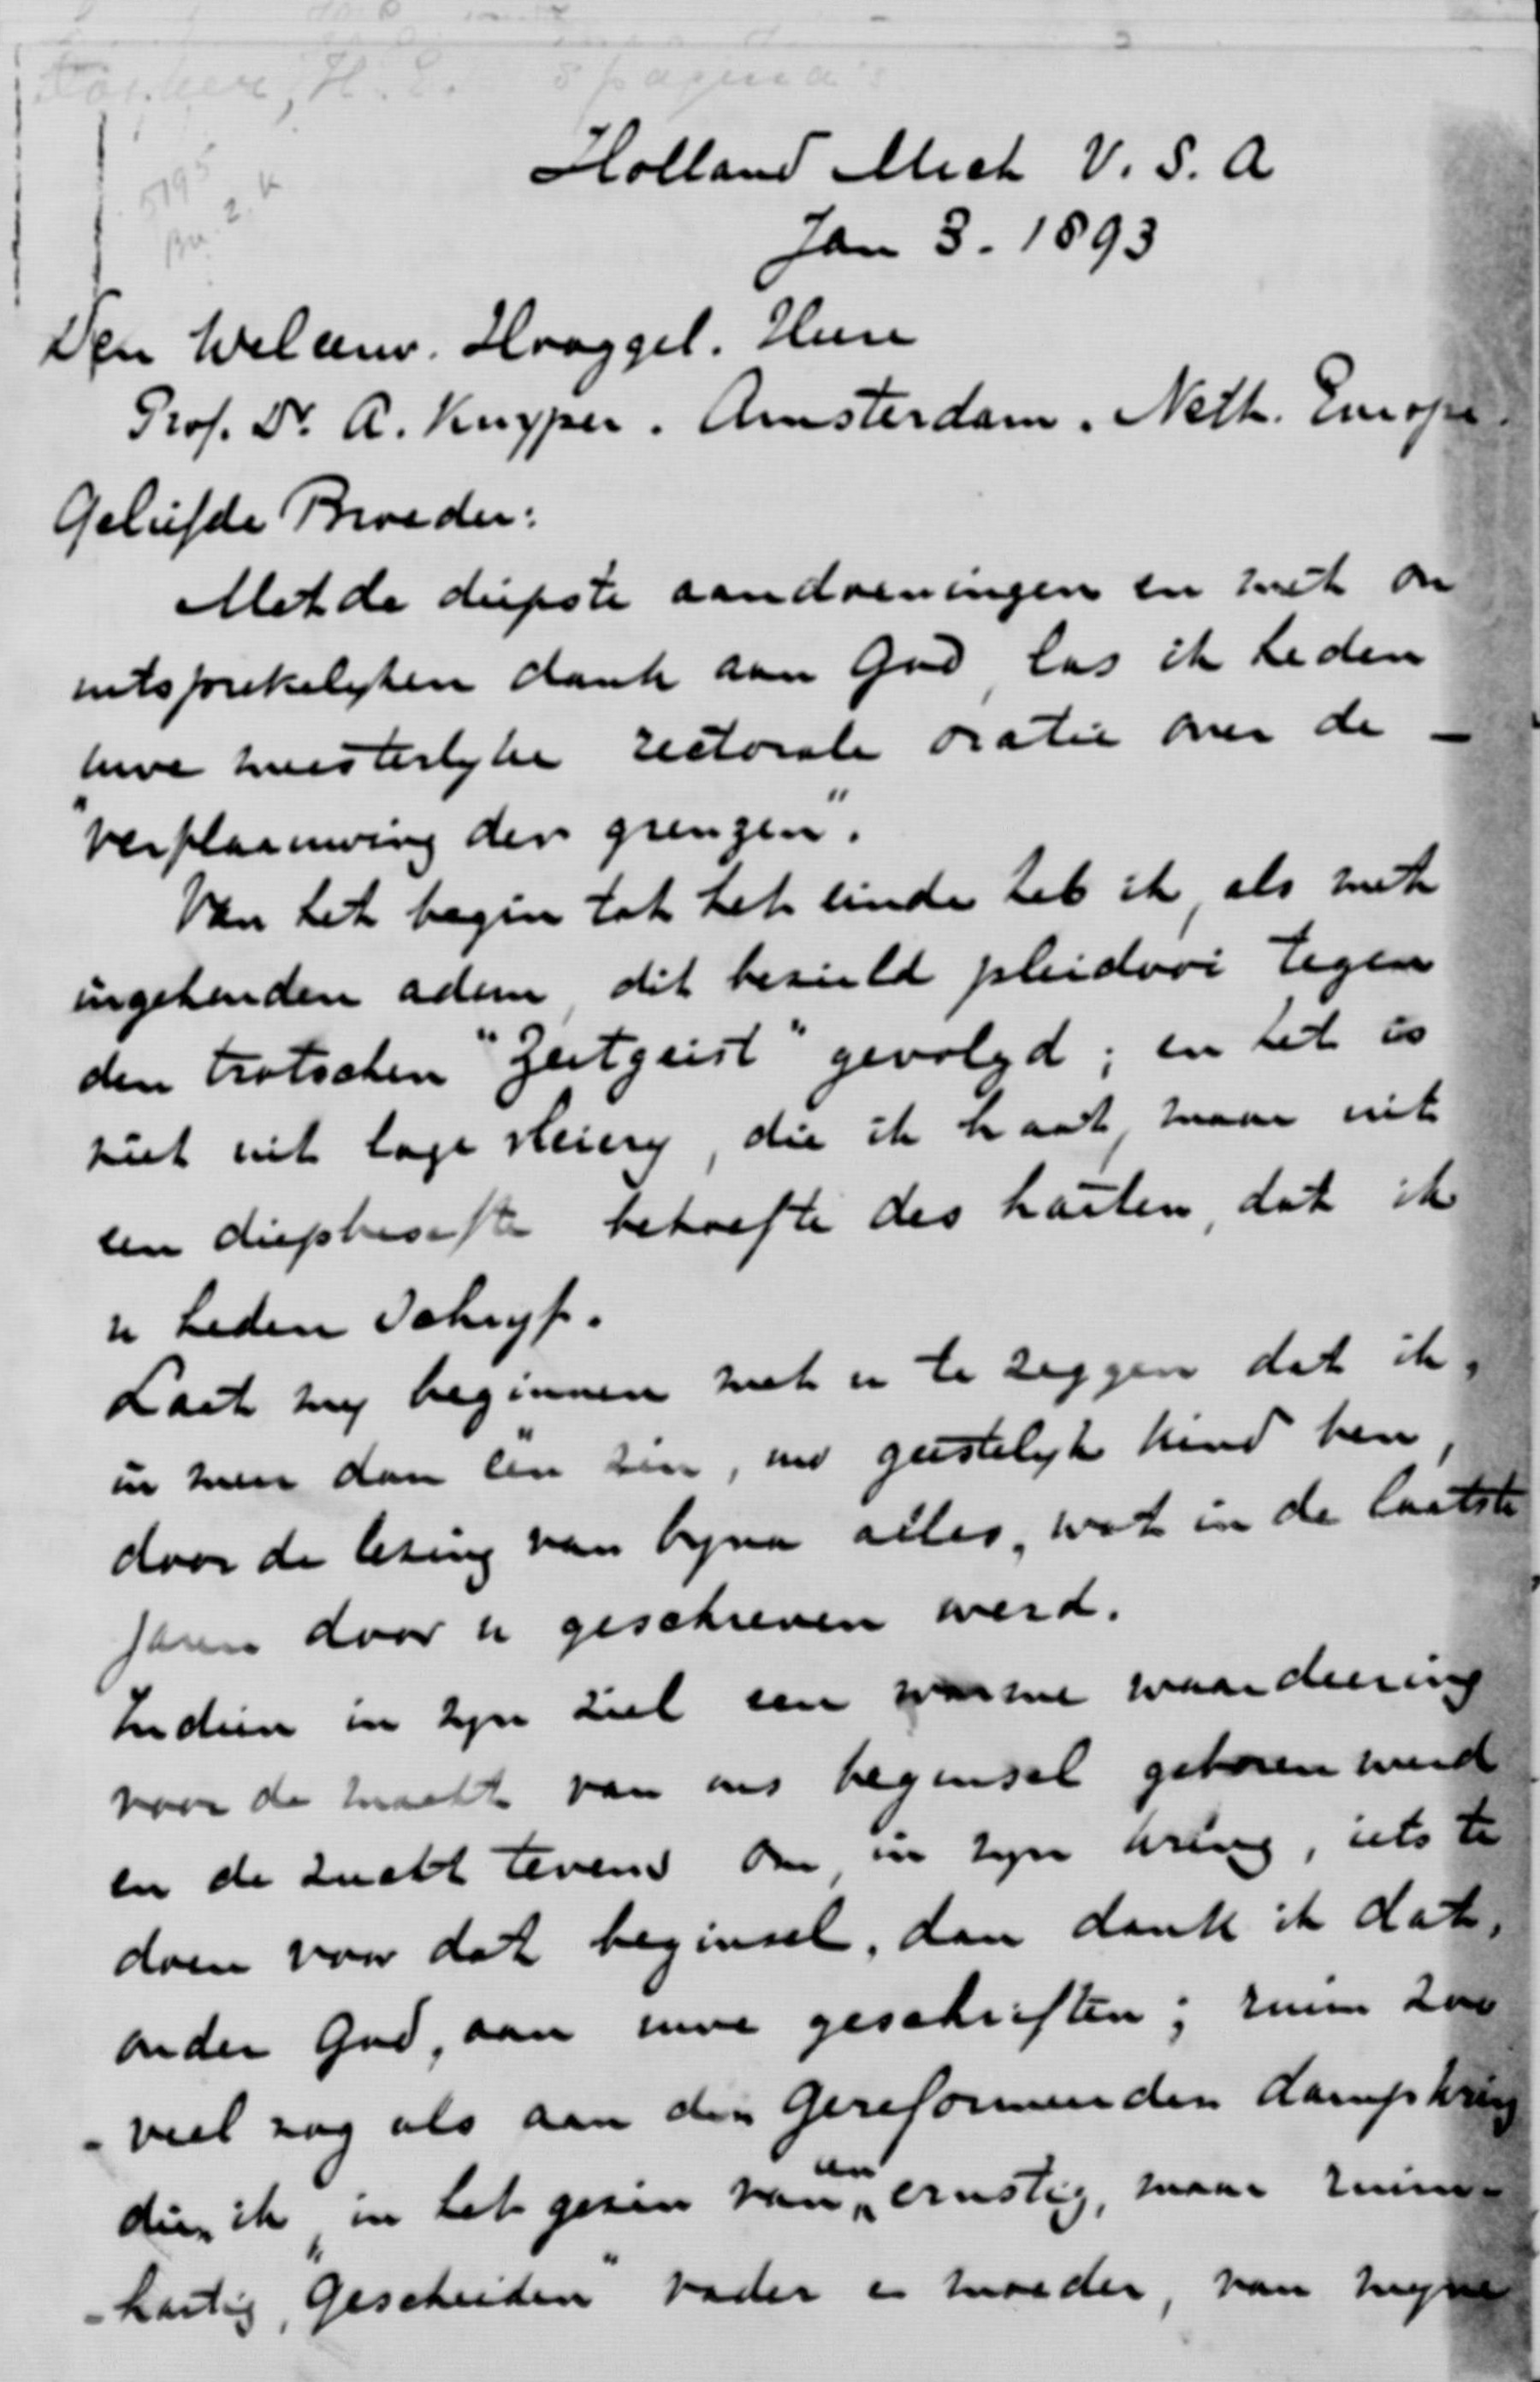 Dosker, H. E. 5 pagina's
5195
Br. 2. K
Holland Mich V. S. A
Jan 3. 1893
Den Weleerw. Hooggel. Heere
Prof. Dr. A. Kuyper. Amsterdam. Neth. Europe.
Geliefde Broeder:
Met de diepste aandoeningen en met on
uitsprekelyken dank aan God, las ik heden
uwe meesterlyke rectorale oratie over de -
"verflaauwing der grenzen".
Van het begin tot het einde heb ik, als met
ingehouden adem, dit bezield pleidooi tegen
den trotschen "Zeitgeist" gevolgd; en het is
niet uit lage vleiery, die ik haat, maar uit
een diepbesefte behoefte des harten, dat ik
u heden schryf.
Laat my beginnen met u te zeggen dat ik,
in meer dan één zin, uw geestelyk kind ben,
door de lezing van byna alles, wat in de laatste
jaren door u geschreven werd.
Indien in myn ziel een warme waardeering
voor de macht van ons beginsel geboren werd
en de zucht tevens om, in myn kring, iets te
doen voor dat beginsel, dan dank ik dat,
onder God, aan uwe geschriften; ruim zoo
- veel nog als aan den Gereformeerden dampkring
dien ik, in het gezin van een ernstig, maar ruim-
-hartig, "Gescheiden" vader en moeder, van myne